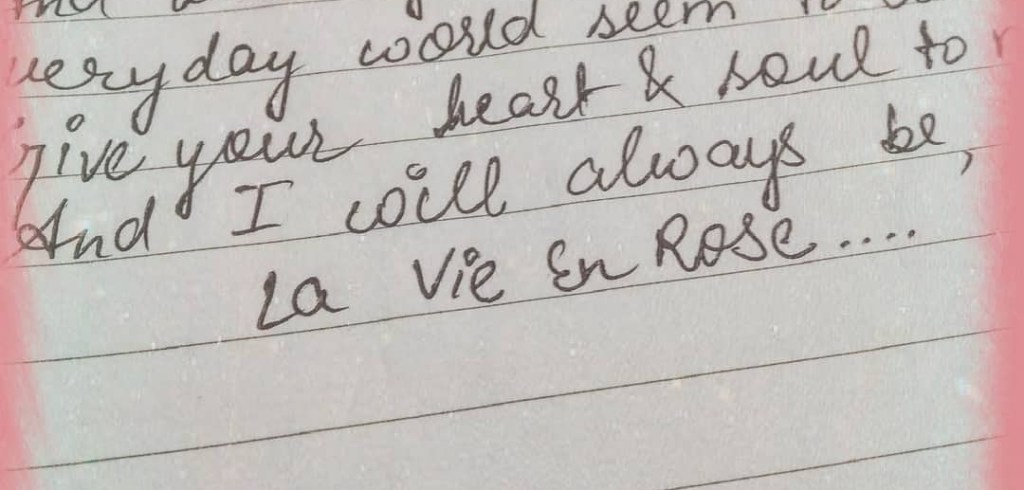 veryday world seem
give your heart & soul to
And I will always be,
La Vie En Rose....